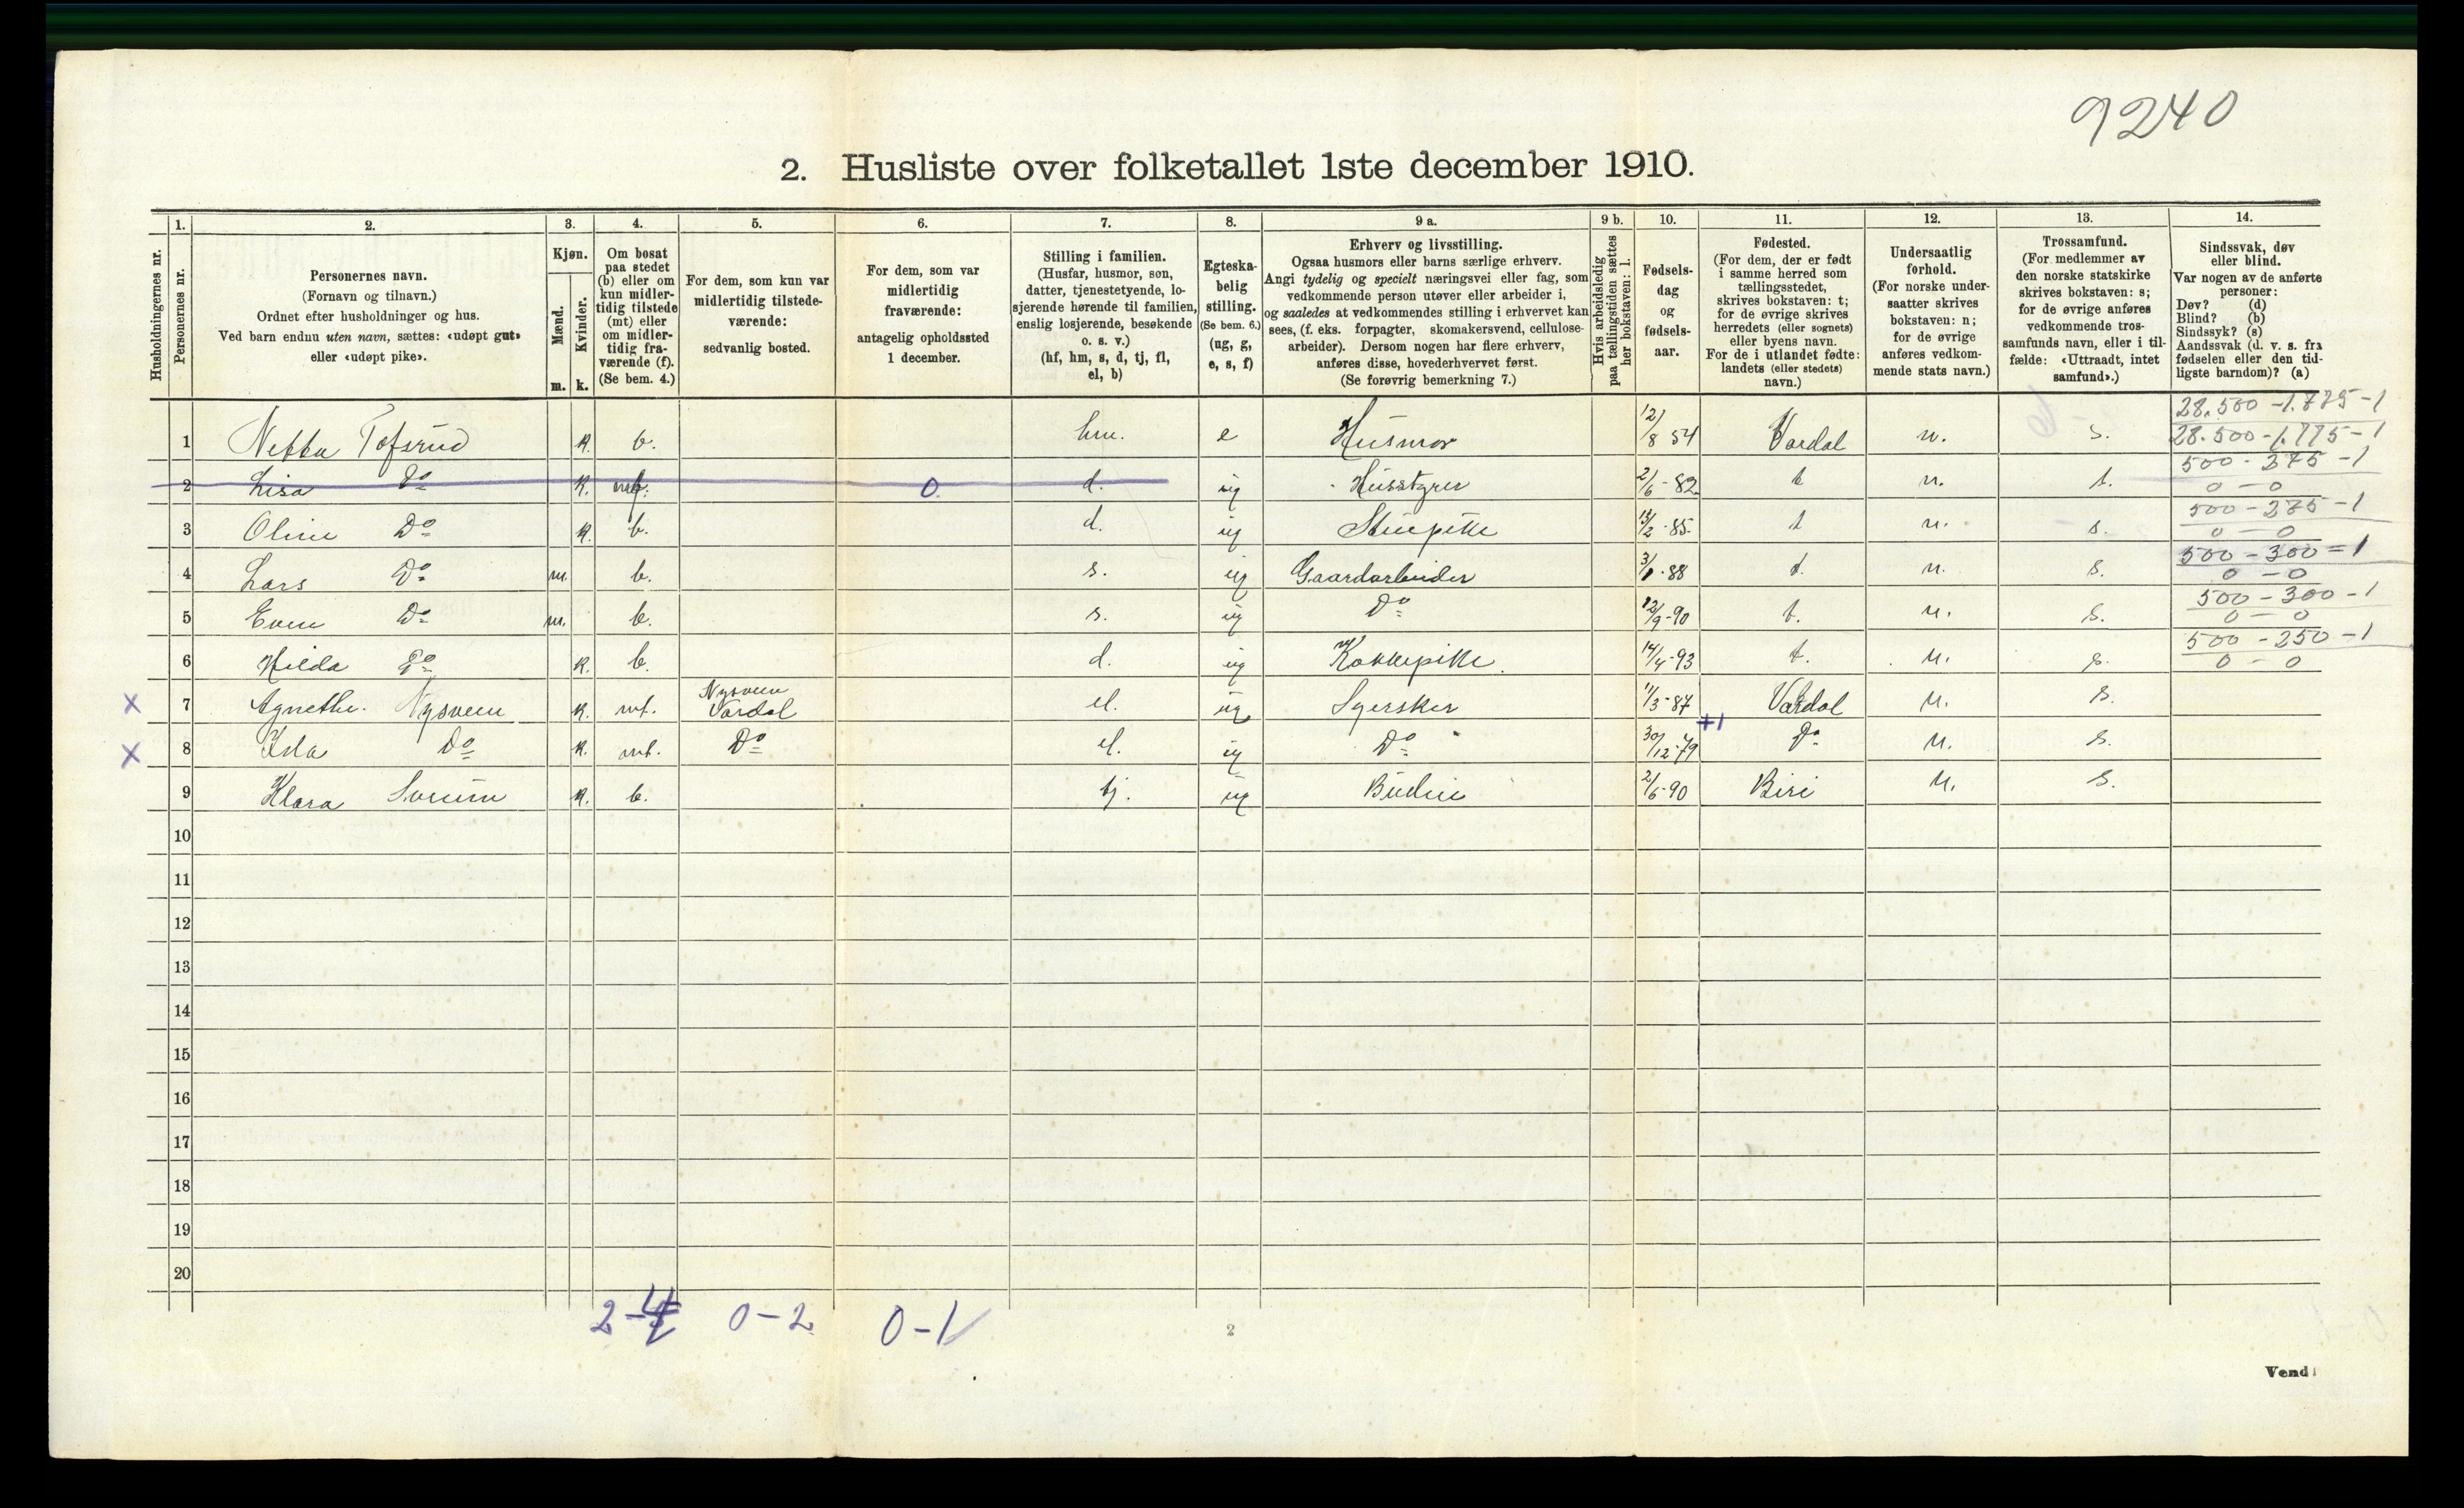 9240
2. Husliste over folketallet 1ste december 1910.
Husholdningernes nr.
1.
Personernes nr.
2.
Personernes navn.
(Fornavn og tilnavn.)
Ordnet efter husholdninger og hus.
Ved barn endnu uten navn, sættes: «udøpt gut»
eller «udøpt pike».
3.
Kjøn.
Mænd.
Kvinder.
m. k.
4.
Om bosat
paa stedet
(b) eller om
kun midler-
tidig tilstede
(mt) eller
om midler-
tidig fra-
værende (f).
(Se bem. 4.)
5.
For dem, som kun var
midlertidig tilstede-
værende:
sedvanlig bosted.
6.
For dem, som var
midlertidig
fraværende:
antagelig opholdssted
1 december.
7.
Stilling i familien.
(Husfar, husmor, søn,
datter, tjenestetyende, lo-
sjerende hørende til familien,
enslig losjerende, besøkende
o. s. v.)
(hf, hm, s, d, tj, fl,
el, b)
8.
Egteska-
belig
stilling.
(Se bem. 6.)
(ug, g,
e, s, f)
9 a.
Erhverv og livsstilling.
Ogsaa husmors eller barns særlige erhverv.
Angi tydelig og specielt næringsvei eller fag, som
vedkommende person utøver eller arbeider i,
og saaledes at vedkommendes stilling i erhvervet kan
sees, (f. eks. forpagter, skomakersvend, cellulose-
arbeider). Dersom nogen har flere erhverv,
anføres disse, hovederhvervet først.
(Se forøvrig bemerkning 7.)
9 b.
Hvis arbeidsledig
paa tællingstiden sættes
her bokstaven: l.
10.
Fødsels-
dag
og
fødsels-
aar.
11.
Fødested.
(For dem, der er født
i samme herred som
tællingsstedet,
skrives bokstaven: t;
for de øvrige skrives
herredets (eller sognets)
eller byens navn.
For de i utlandet fødte:
landets (eller stedets)
navn.)
12.
Undersaatlig
forhold.
(For norske under-
saatter skrives
bokstaven: n;
for de øvrige
anføres vedkom-
mende stats navn.)
13.
Trossamfund.
(For medlemmer av
den norske statskirke
skrives bokstaven: s;
for de øvrige anføres
vedkommende tros-
samfunds navn, eller i til-
fælde: «Uttraadt, intet
samfund».)
14.
Sindssvak, døv
eller blind.
Var nogen av de anførte
personer:
Døv? (d)
Blind? (b)
Sindssyk? (s)
Aandssvak (d. v. s. fra
fødselen eller den tid-
ligste barndom)? (a)
28.500 - 1.775 - 1
1 k. b. hm. e Husmor 12/8 54 Vardal n. s. 28.500 - 1.775 - 1
500 - 375 - 1
2 Lisa Do k. d. ug Husstyrer 2/6 - 82 t n. s. 0 - 0
500 - 275 - 1
3 Oline Do k. b. d. ug Stuepike 13/2 - 85 t n. s. 0 - 0
500 - 300 = 1
4 Lars Do m. b. s. ug Gaardarbeider - 88 t. n. s. 0 - 0
500 - 300 - 1
5 Even Do m. b. s. ug Do 12/9 - 90 t. n. s. 0 - 0
500 - 250 - 1
6 Hilda Do k. b. d. ug Kokkepike. 14/4 - 93 t. n. s. 0 - 0
x 7 Agnethe Nysveen k. mt. Nysveen
Vardal el. ug Syerske 11/3 - 87 Vardal n. s.
+1
x 8 Do k. mt. Do el. ug Do 30/12 - 79 Do n. s.
9 Klara k. b. tj. ug Budeie 2/6 - 90 Biri n. s.
10
11
12
13
14
15
16
17
18
19
20
2 - 4 0 - 2 0 - 1
2
Vend!